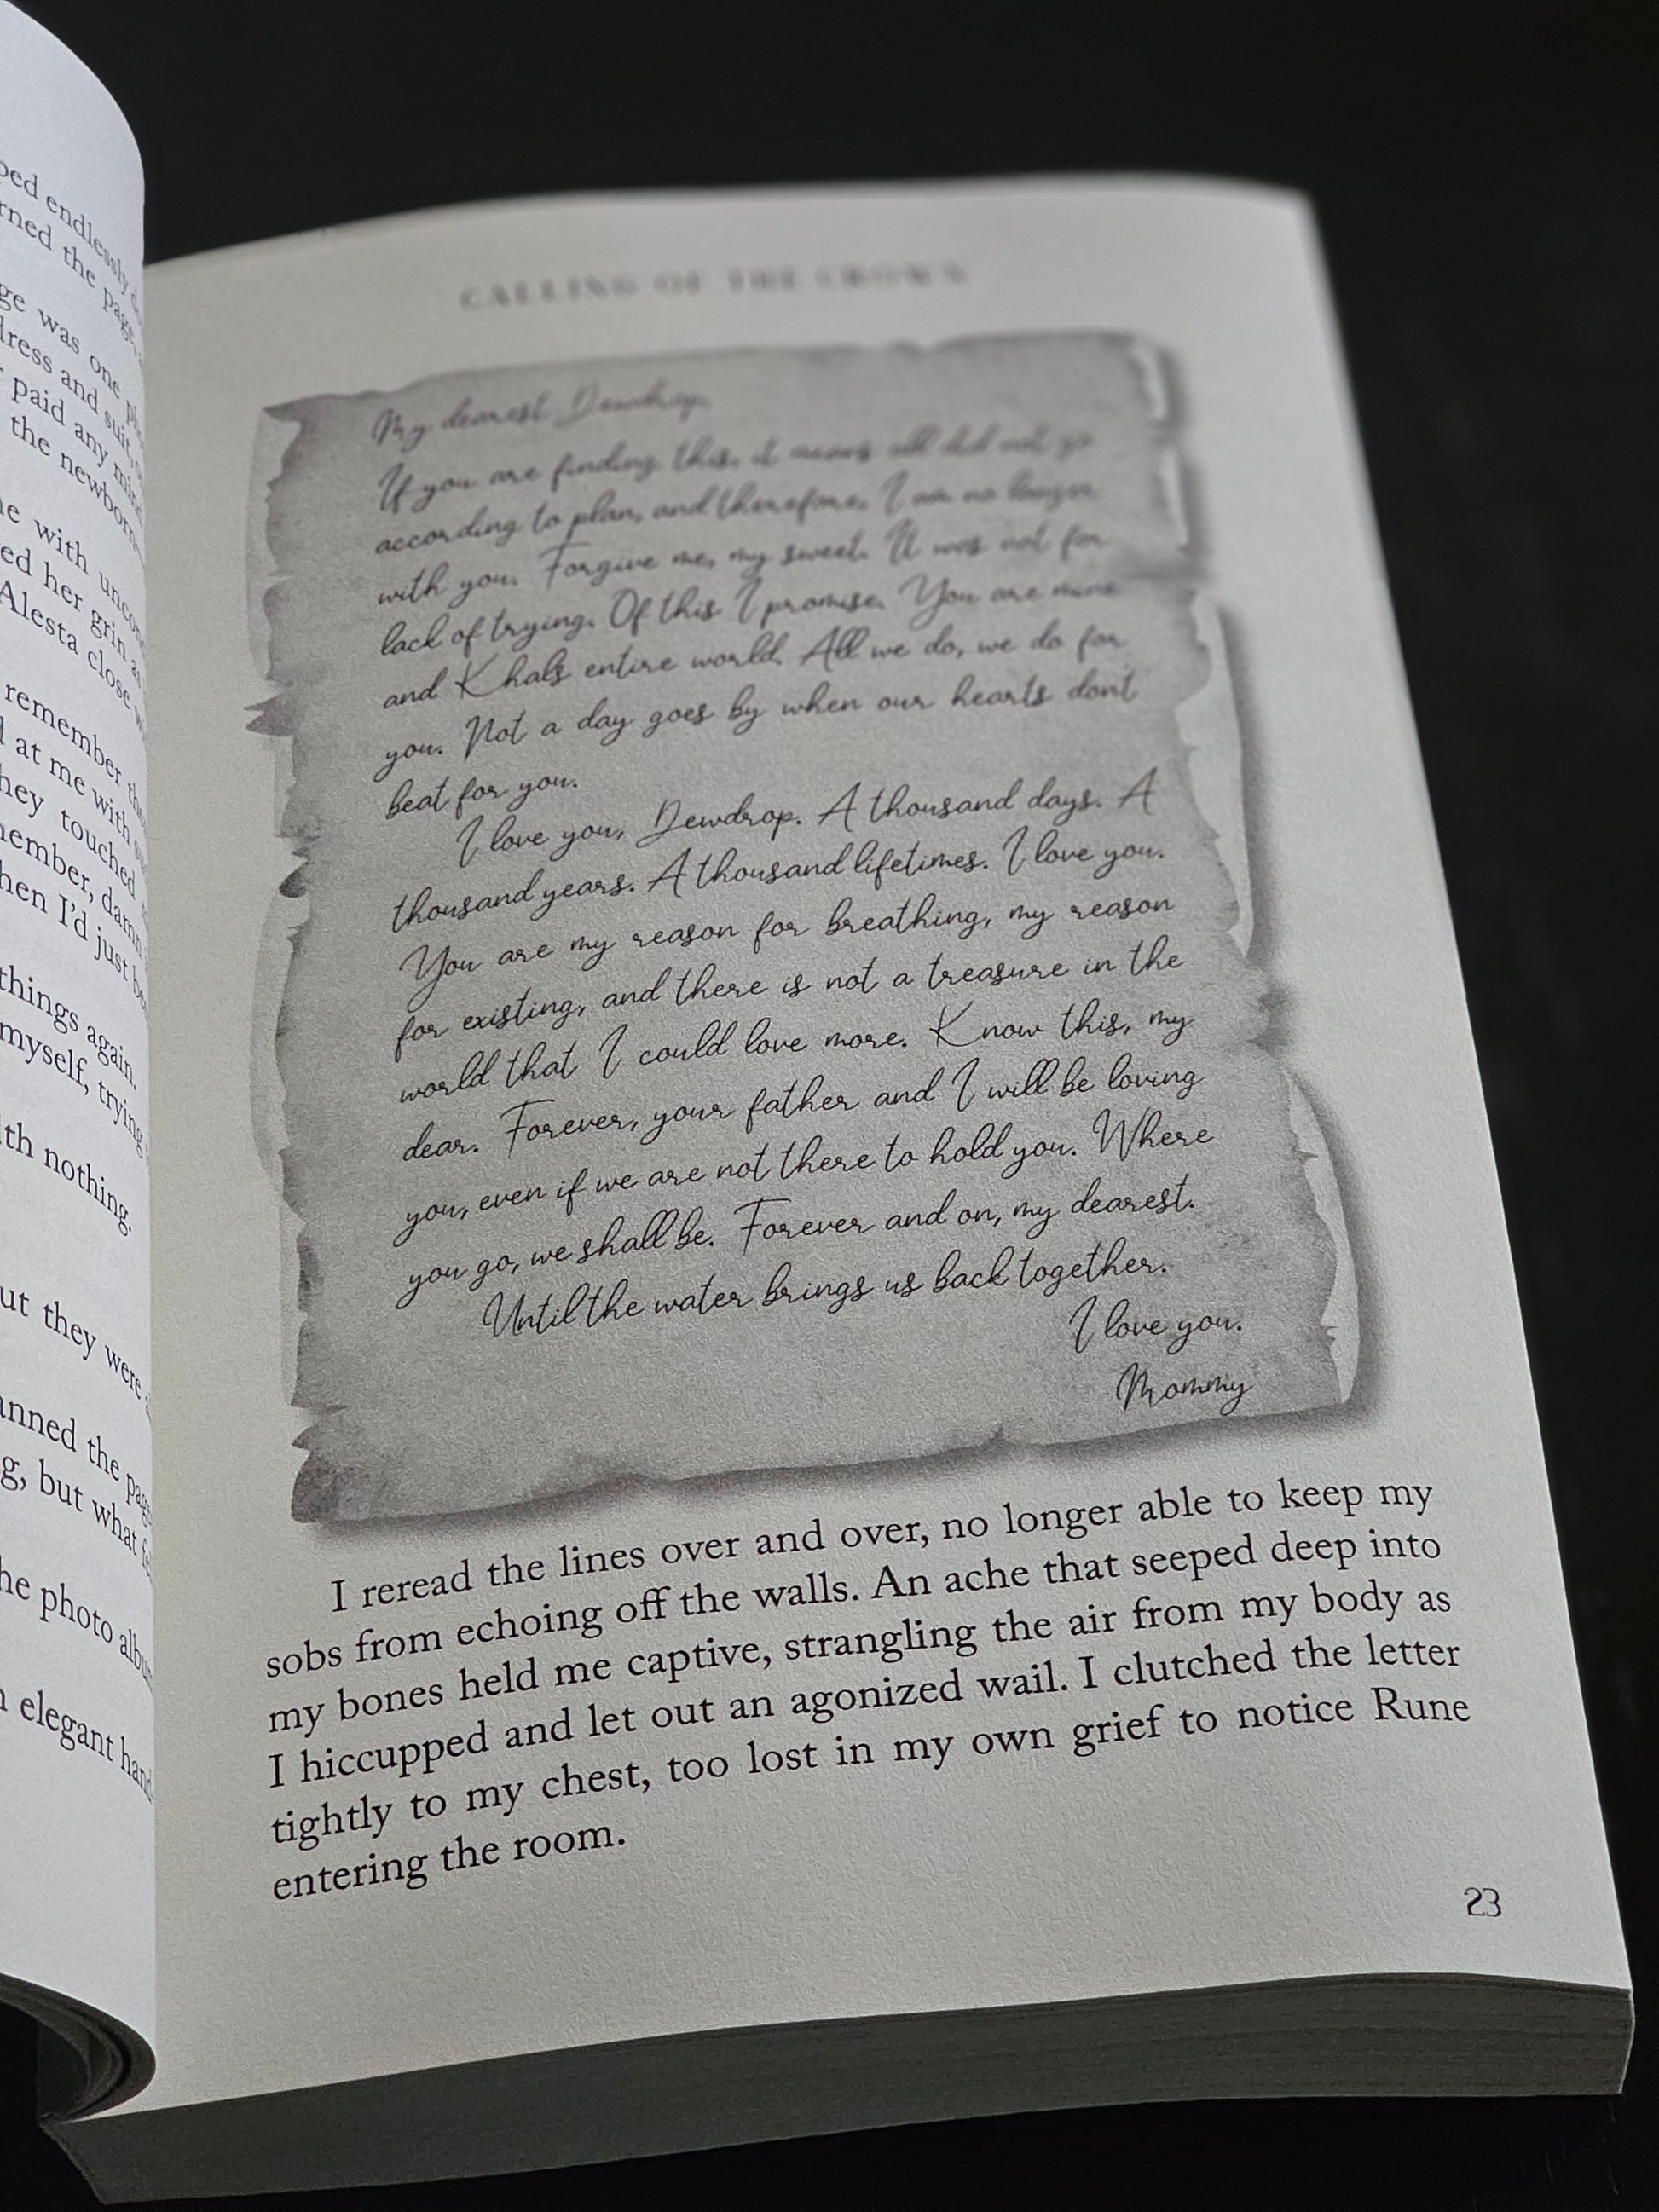 ped endlessly
rned the page,
ge was one
dress and suit,
paid any mind
the newborn
e with
ed her grin as
Alesta close
remember
at me with
hey touched
member, damn
hen I'd just
things again.
myself, trying
ith nothing.
ut they were
anned the page
g, but what
he photo album
elegant hand
CALLING OF THE CROWN
My dearest Dewdrop,
If you are finding this, it means all did not go
according to plan, and therefore, I am no longer
with you. Forgive me, my sweet. It was not for
lack of trying. Of this I promise. You are mine
and Khals entire world. All we do, we do for
you. Not a day goes by when our hearts dont
beat for you.
I love you, Dewdrop. A thousand days. A
thousand years. A thousand lifetimes. I love you.
You are my reason for breathing, my reason
for existing, and there is not a treasure in the
world that I could love more. Know this, my
dear. Forever, your father and I will be loving
you, even if we are not there to hold you. Where
you go, we shall be. Forever and on, my dearest.
Until the water brings us back together.
I love you.
Mommy
I reread the lines over and over, no longer able to keep my
sobs from echoing off the walls. An ache that seeped deep into
my bones held me captive, strangling the air from my body as
I hiccupped and let out an agonized wail. I clutched the letter
tightly to my chest, too lost in my own grief to notice Rune
entering the room.
23